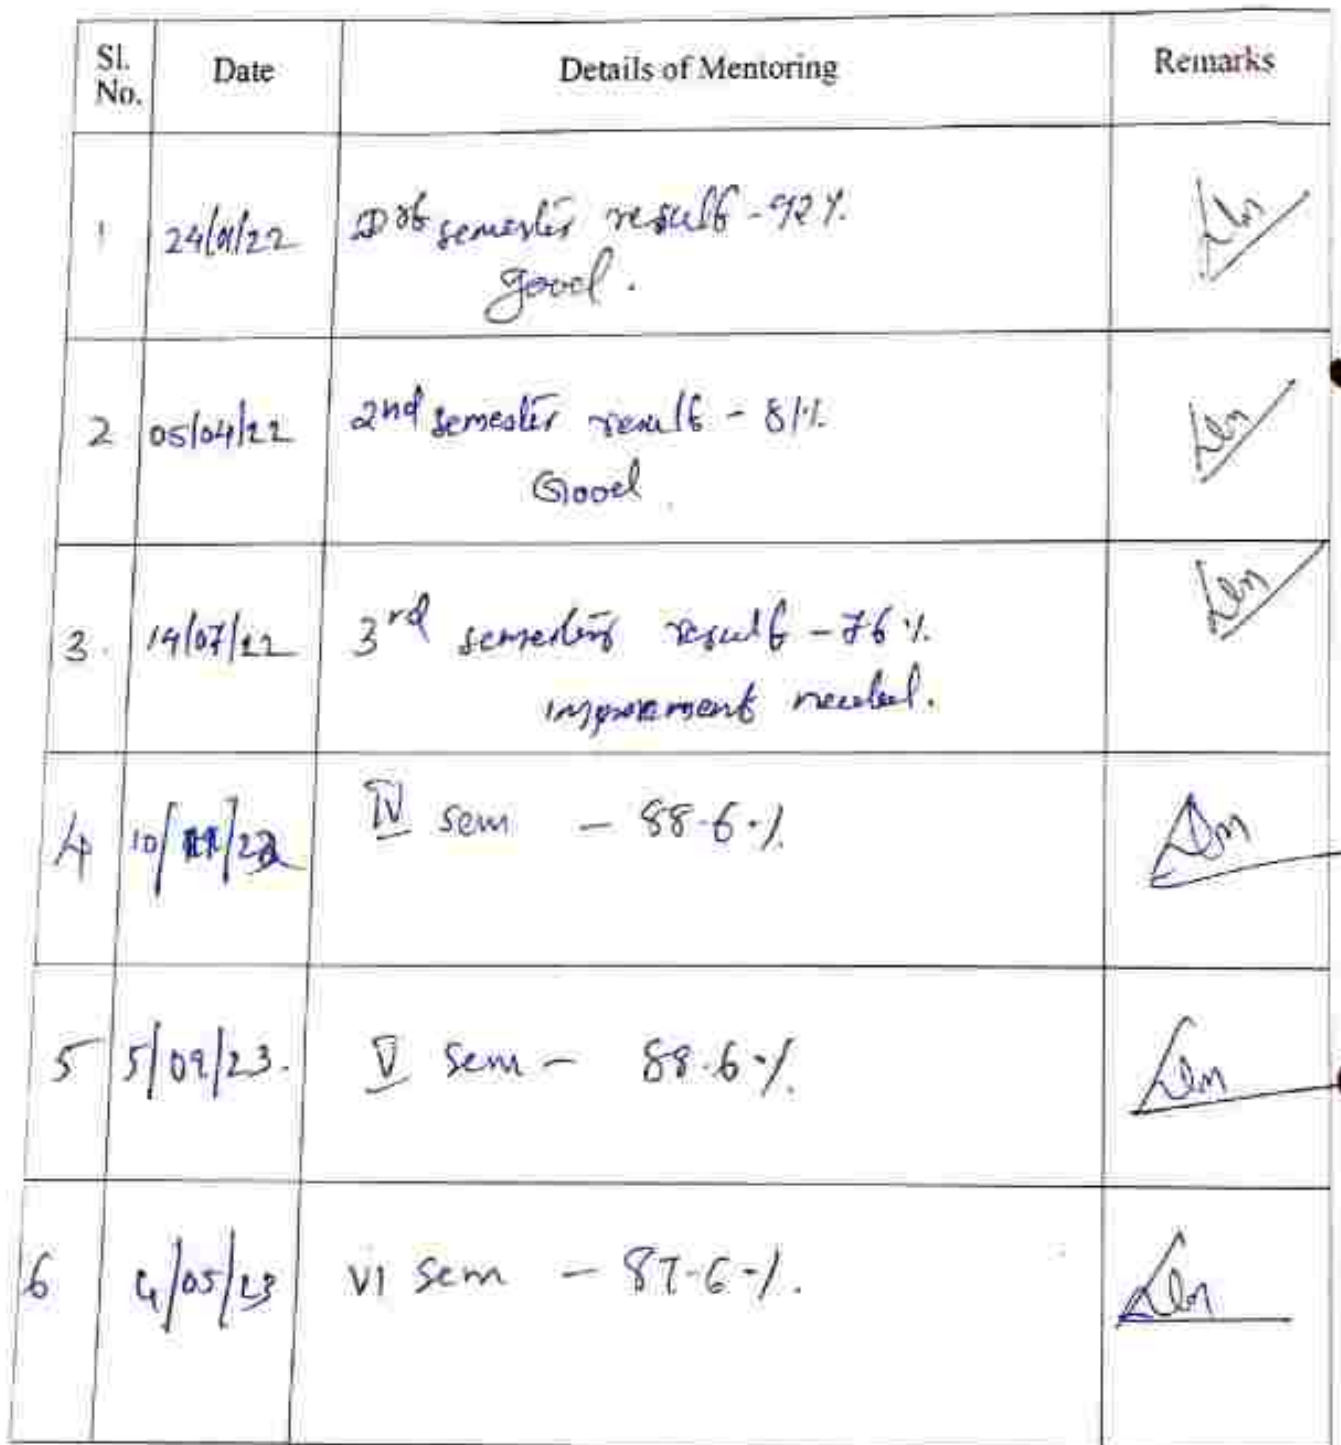 Sl. No. Date Details of Mentoring Remarks
1 24/01/22 semester result - 92%
good.
2 05/04/22 2nd semester result - 81%
Good
3. 14/07/22 3rd semester result - 76%
improvement needed.
4 10/11/22 IV sem - 88.6%
5 5/09/23. V sem - 88.6%
6 4/05/23 VI sem - 87.6%.